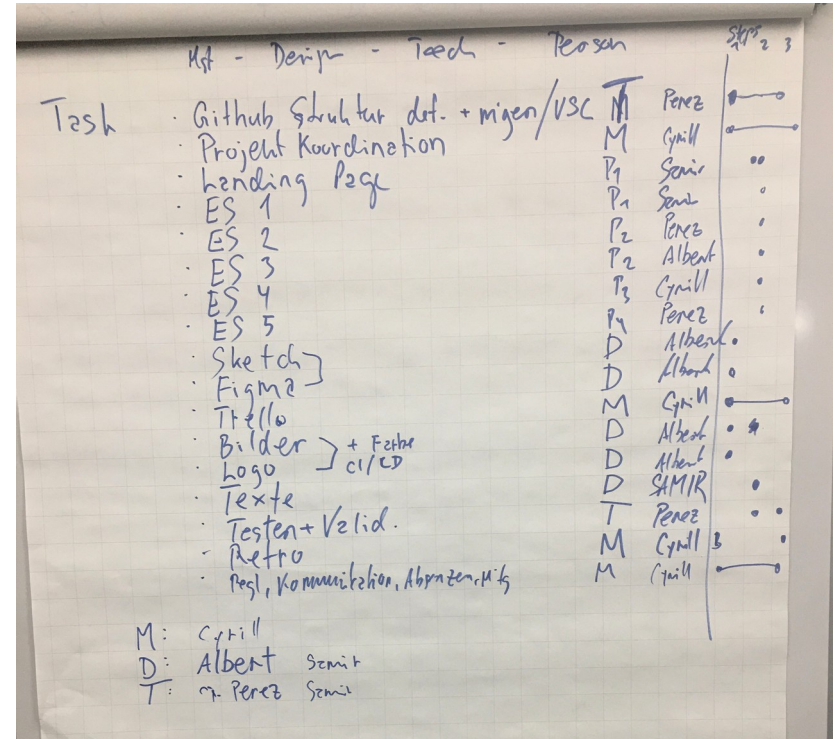 Mgt - Design - Teech - Person Steps 1 2 3
Task · Github Struktur def. + migen/VSC T Perez
· Projekt Koordination M Cyrill
· Landing Page P1 Samir
· ES 1 P1 Samir
· ES 2 P2 Perez
· ES 3 P2 Albert
· ES 4 P3 Cyrill
· ES 5 P4 Perez
· Sketch D Albert
· Figma D Albert
· Trello M Cyrill
· Bilder + Farbe D Albert
· Logo CI/CD D Albert
· Texte D SAMIR
· Testen + Valid. T Perez
· Retro M Cyrill
· Kommunikation, M Cyrill
M: Cyrill
D: Albert Samir
T: Perez Samir